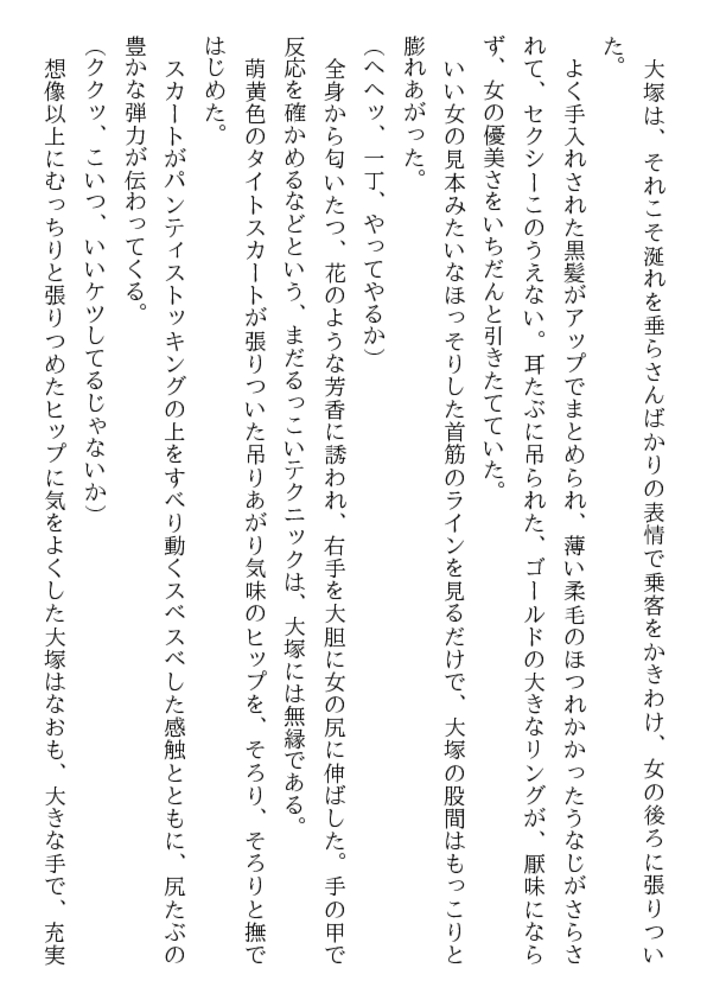 大塚は、それこそ涎れを垂らさんばかりの表情で乗客をかきわけ、女の後ろに張りつい
た。
　よく手入れされた黒髪がアップでまとめられ、薄い柔毛のほつれかかったうなじがさらさ
れて、セクシーこのうえない。耳たぶに吊られた、ゴールドの大きなリングが、厭味になら
ず、女の優美さをいちだんと引きたてていた。
　いい女の見本みたいなほっそりした首筋のラインを見るだけで、大塚の股間はもっこりと
膨れあがった。
（ヘヘッ、一丁、やってやるか）
　全身から匂いたつ、花のような芳香に誘われ、右手を大胆に女の尻に伸ばした。手の甲で
反応を確かめるなどという、まだるっこいテクニックは、大塚には無縁である。
　萌黄色のタイトスカートが張りついた吊りあがり気味のヒップを、そろり、そろりと撫で
はじめた。
　スカートがパンティストッキングの上をすべり動くスベスベした感触とともに、尻たぶの
豊かな弾力が伝わってくる。
（ククッ、こいつ、いいケツしてるじゃないか）
　想像以上にむっちりと張りつめたヒップに気をよくした大塚はなおも、大きな手で、充実